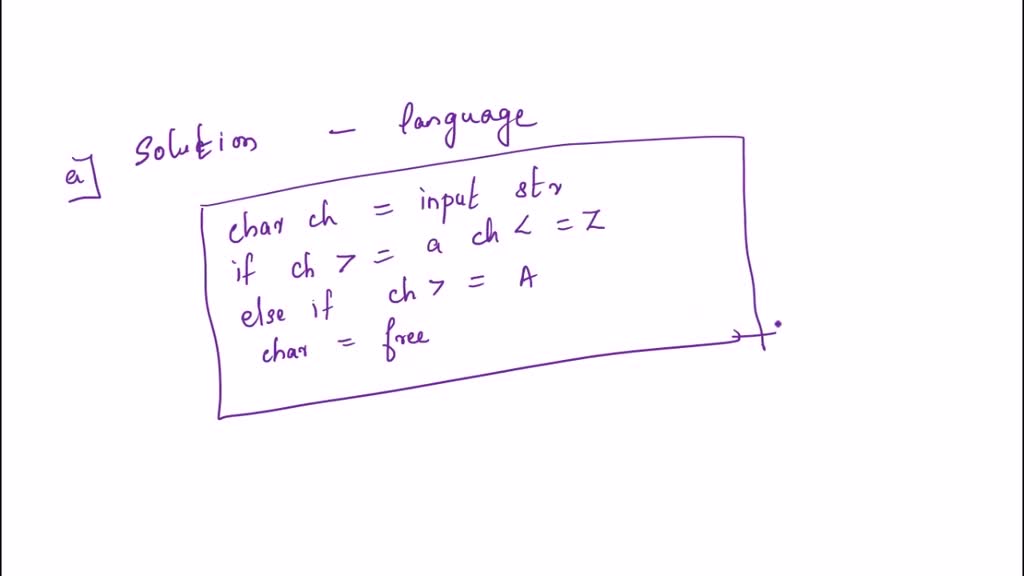 a] Solution - language
char ch = input str
if ch > = a ch < = Z
else if ch > = A
char = free